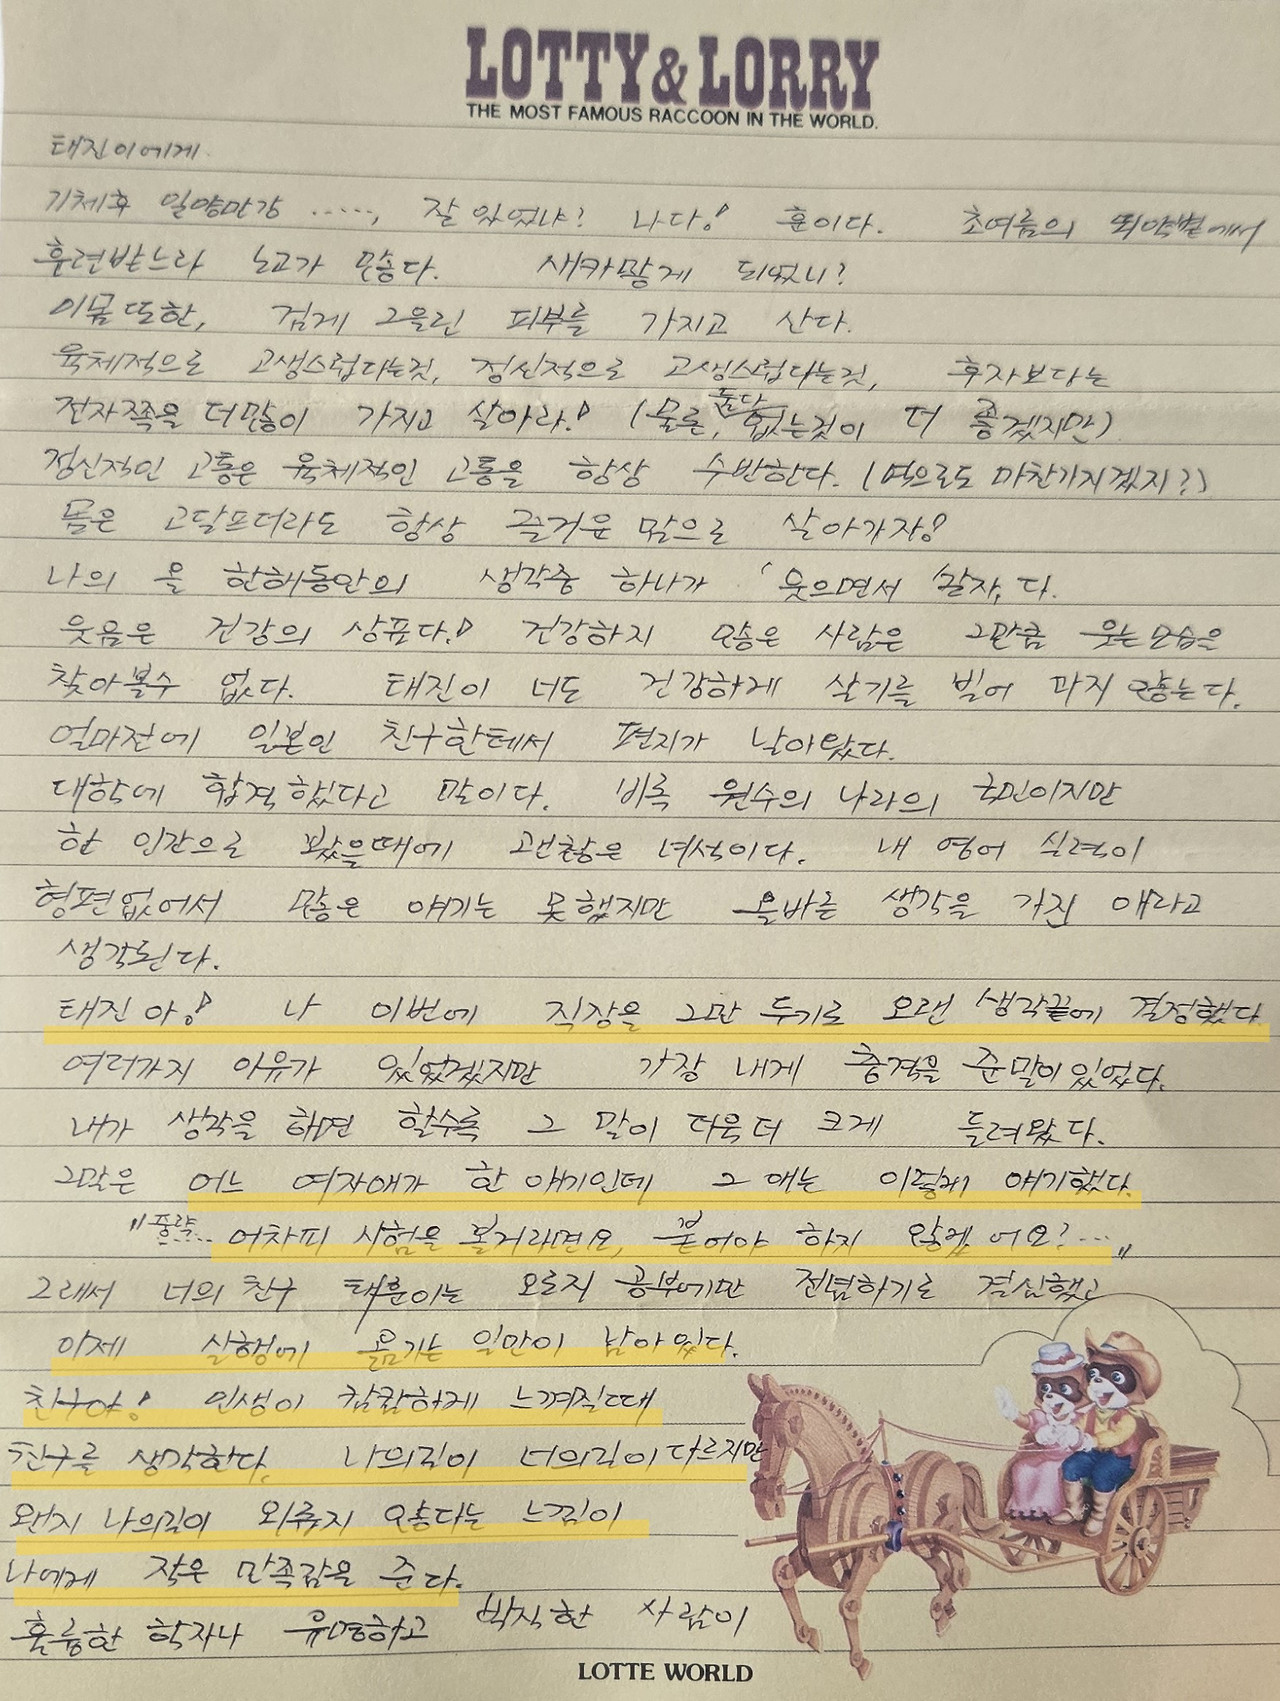 LOTTY & LORRY
THE MOST FAMOUS RACCOON IN THE WORLD.
태진이에게
기체후 일양만강 ....., 잘 있었냐? 나다! 훈이다. 초여름의 뙤약볕에서
훈련받느라 노고가 많다. 새카맣게 되었니?
이몸또한, 검게 그을린 피부를 가지고 산다.
육체적으로 고생스럽다는것, 정신적으로 고생스럽다는것, 후자보다는
전자쪽을 더많이 가지고 살아라! (물론, 둘다 없는것이 더 좋겠지만)
정신적인 고통은 육체적인 고통을 항상 수반한다. (역으로도 마찬가지겠지?)
몸은 고달프더라도 항상 즐거운 맘으로 살아가자!
나의 올 한해동안의 생각중 하나가 '웃으면서 살자,다.
웃음은 건강의 상표다! 건강하지 않은 사람은 그만큼 웃는모습을
찾아볼수 없다. 태진이 너도 건강하게 살기를 빌어 마지 않는다.
얼마전에 일본인 친구한테서 편지가 날아왔다.
대학에 합격했다고 말이다. 비록 원수의 나라의 국민이지만
한 인간으로 봤을때에 괜찮은 녀석이다. 내 영어 실력이
형편없어서 많은 얘기는 못했지만 올바른 생각을 가진 애라고
생각된다.
태진아! 나 이번에 직장을 그만 두기로 오랜 생각끝에 결정했다
여러가지 이유가 있었겠지만 가장 내게 충격을 준말이있었다.
내가 생각을 하면 할수록 그 말이 더욱더 크게 들려왔다.
그말은 어느 여자애가 한 얘기인데 그 애는 이렇게 얘기했다.
"중략... 어차피 시험을 볼거라면요, 붙어야 하지 않겠어요?..."
그래서 너의 친구 태훈이는 오로지 공부에만 전념하기로 결심했고
이제 실행에 옮기는 일만이 남아있다.
친구야! 인생이 캄캄하게 느껴질때
친구를 생각한다. 나의길이 너의길이 다르지만
왠지 나의길이 외롭지 않다는 느낌이
나에게 작은 만족감을 준다.
훌륭한 학자나 유명하고 박식한 사람이
LOTTE WORLD